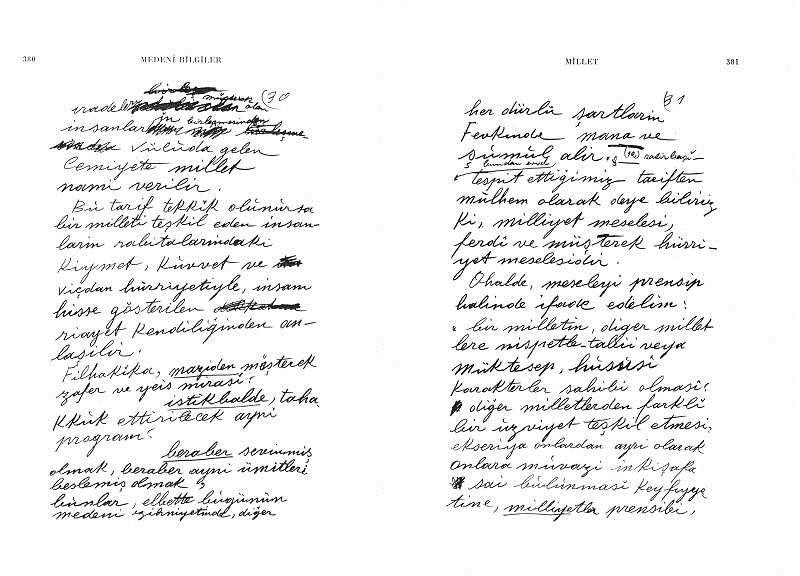 380
MEDENÎ BİLGİLER
(30
müşterek
iradeler olan
birleşmesinden
insanların
vücuda gelen
Cemiyete millet
nami verilir.
Bu tarif tetkik olunursa
bir milleti teşkil eden insan-
ların rabıtalarındaki
Kiymet, kuvvet ve
vicdan hürriyetiyle, insanı
hisse gösterilen
riayet kendiliğinden an-
laşilir.
Filhakika, maziden müşterek
zafer ve yeis mirasi;
istikbalde, taha
kkuk ettirilecek ayni
program;
beraber sevinmiş
olmak, beraber ayni ümitleri
beslemiş olmak;
bunlar, elbette bugünün
medeni zihniyetinde, diğer
MİLLET
381
31
her dürlü şartların
Fevkinde mana ve
şümul alir.
bundan evvel
§ (12) satırbaşı-
tespit ettiğimiz tariften
mülhem olarak deye biliriz
ki, milliyet meselesi,
ferdî ve müşterek hürri-
yet meselesidir.
Ohalde, meseleyi prensip
halinde ifade edelim:
bir milletin, diğer millet
lere nispetle tabii veya
müktesep, hususî
karakterler sahibi olmasi;
diğer milletlerden farklî
bir uzviyet teşkil etmesi,
ekseriya onlardan ayri olarak
onlara müvazi inkişafa
sai bulunmasi keyfiye
tine, milliyetler prensibi,